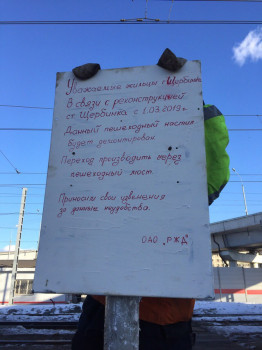 Уважаемые жильцы г. Щербинка
В связи с реконструкцией
ст. Щербинка с 1.03.2013г.
Данный пешеходный настил
будет демонтирован.
Переход производить через
пешеходный мост.
Приносим свои извинения
за данные неудобства.
ОАО "РЖД"